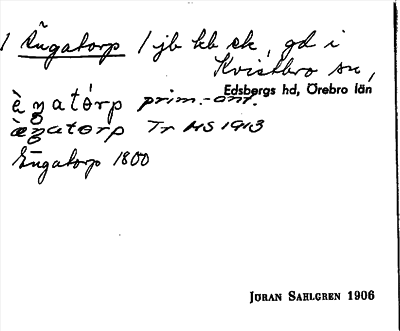 / Ängatorp / jb kb sk, gd i
Kvistbro sn,
Edsbergs hd, Örebro län
prim.-ant.
Tr HS 1913
Engatorp 1800
JÖRAN SAHLGREN 1906